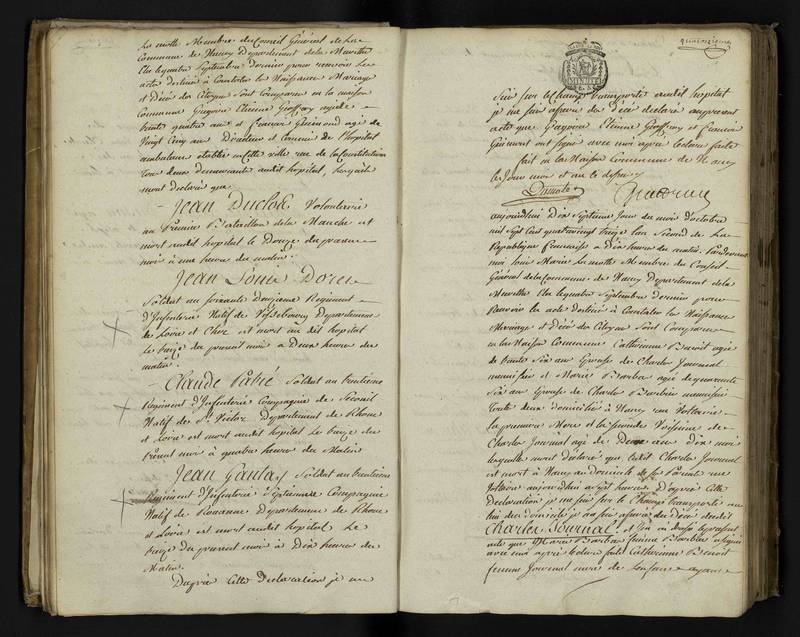 La motte Membre du Conseil Général de La
Commune de Nancy Departement de la Meurthe
Elu le quatre Septembre dernier pour recevoir Les
acte destiné à Constater la Naissance Mariage
et Décé des Citoyens Sont Comparu en la maison
Commune Grégoire Etienne Geoffroy agé de
trente quatre ans et François Guémond agé de
Vingt Cinq ans Directeur et Commis de l'hopital
ambulant etablie en cette ville rue de la Constitution
tous deux demeurants audit hopital, lesquels
mont declaré que
Jean Duclos Volontaire
au Premier Bataillon de la Manche est
mort audit hopital le Douze du present
mois à une heure du matin
Jean Louis Doren
Soldat au soixante Douzieme Regiment
d'Infanterie Natif de Departement
de Loire et Cher est mort au dit hopital
Le treize du present mois a Deux heures du
matin
Claude Patié Soldat au trentieme
Regiment d'Infanterie Compagnie de
Natif de St Victor Departement de Rhone
et Loire est mort audit hopital Le treize du
présent mois à quatre heures du Matin
Jean Gantay Soldat au trentieme
Regiment d'Infanterie Compagnie
Natif de Roanne Departement de Rhone
et Loire est mort audit hopital Le
treize du present mois à Dix heures du
Matin
Dapré Cette Declaration je me
quinzieme
Suis sur le Champ transporté audit hopital
je me suis assuré du décé declaré au present
acte que Grégoire Etienne Geoffroy et François
Guémont ont signé avec moi apré Lecture faite
fait en la Maison Commune de Nancy
les Jour mois et an ci dessus
Lamotte
aujourdhui Dix Septieme Jour du mois d'octobre
mil Sept Cent quatre vingt treize lan Second de La
Republique francaise a Dix heures du matin. Pardevant
moi Louis Marie La motte Membre du Conseil
Général de la Commune de Nancy Departement de la
Meurthe Elu le quatre Septembre dernier pour
Recevoir les acte destiné à Constater la Naissance
Mariage et Décé des Citoyens Sont Comparu
en la Maison Commune Catherinne Benoit agée
de trente Six ans Epouse de Charles Journal
et Marie Barbier agée de quarante
Six ans Epouse de Charles Barbier
Toute deux domicilié à Nancy rue Voltaire
la premiere Mere et la seconde Voisine de
Charles Journal agé de Deux ans Dix mois
lesquelles mont déclaré que ledit Charles Journal
est mort à Nancy au domicile de ses Parents rue
Voltaire aujourdhui a sept heures D'apré Cette
Declaration je me suis sur le Champ transporté au
lieu du domicile je me suis assuré du décé dudit
Charles Journal et j'en ai dressé le present
acte que Marie Barbier femme Barbier a signé
avec moi apré Lecture faite Catherinne Benoit
femme Journal mere de l'enfant ayant